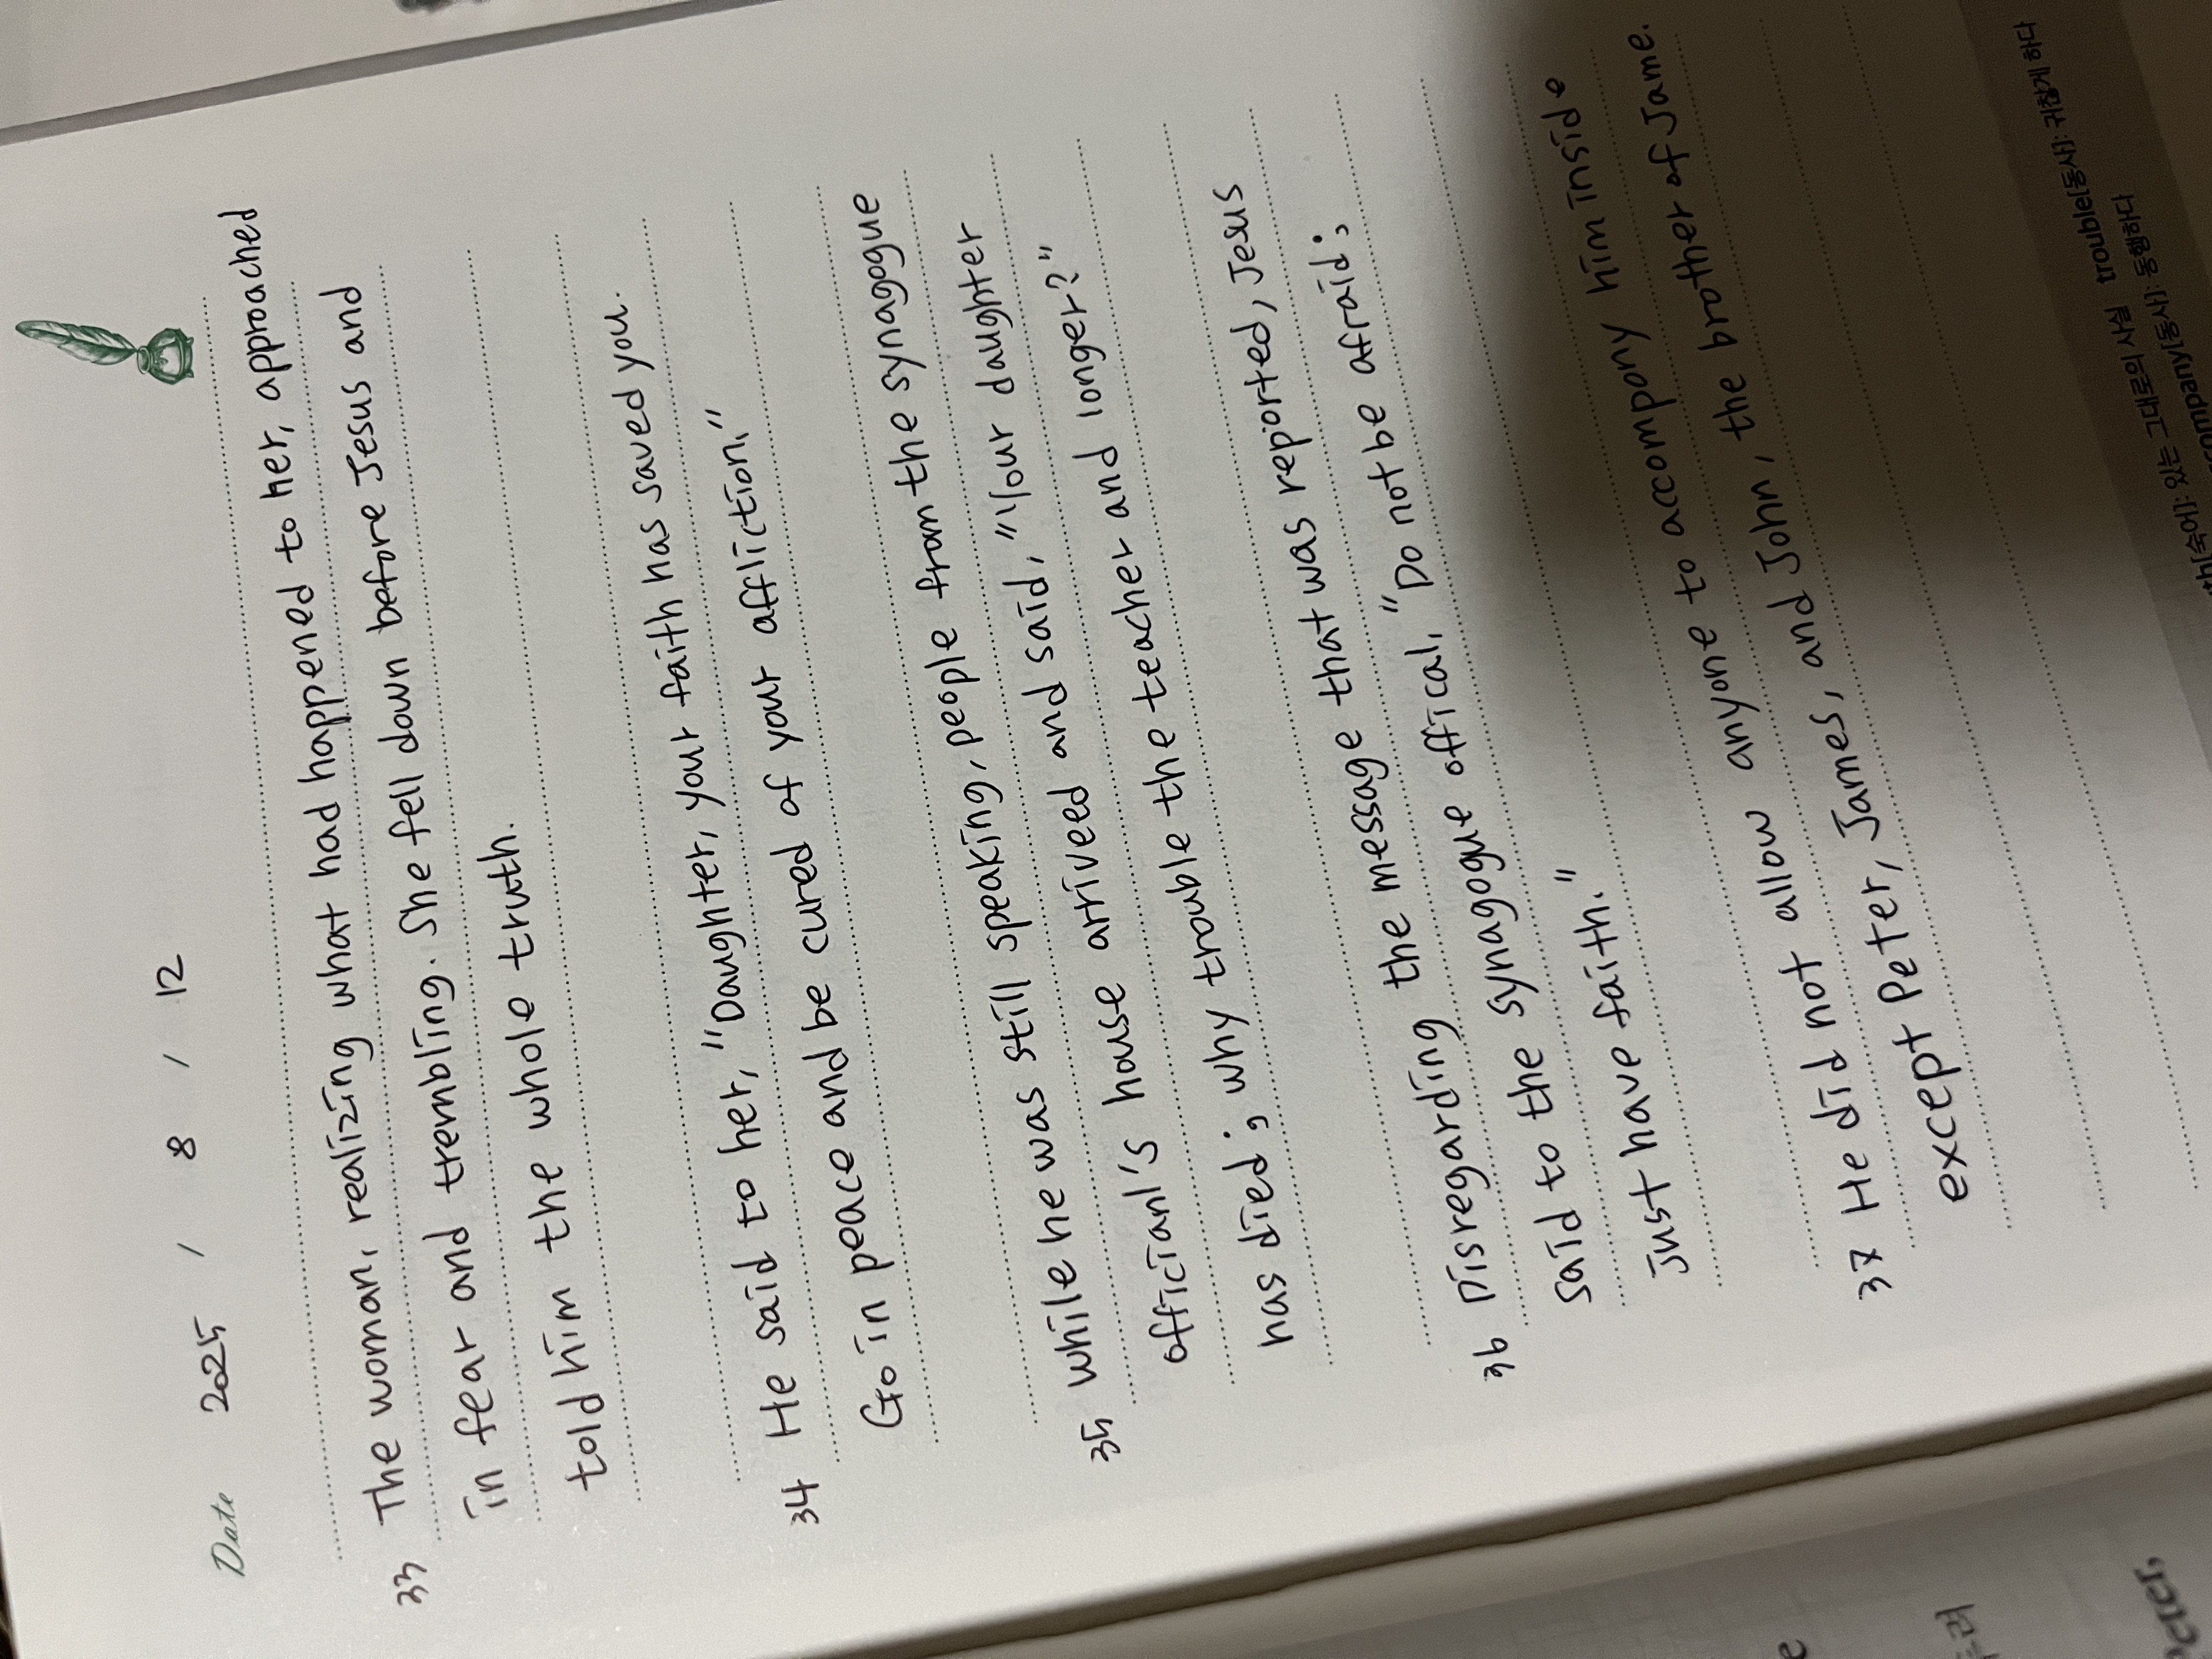 Date 2025 / 8 / 12
33 The woman, realizing what had happened to her, approached
in fear and trembling. She fell down before Jesus and
told him the whole truth.
34 He said to her, "Daughter, your faith has saved you.
Go in peace and be cured of your affliction."
35 while he was still speaking, people from the synagogue
official's house arriveed and said, "Your daughter
has died; why trouble the teacher and longer?"
36 Disregarding the message that was reported, Jesus
said to the synagogue offical, "Do not be afraid;
Just have faith."
37 He did not allow anyone to accompony him inside
except Peter, James, and John, the brother of Jame.
있는 그대로의 사실 trouble[동사]: 귀찮게 하다
동행하다
Peter,